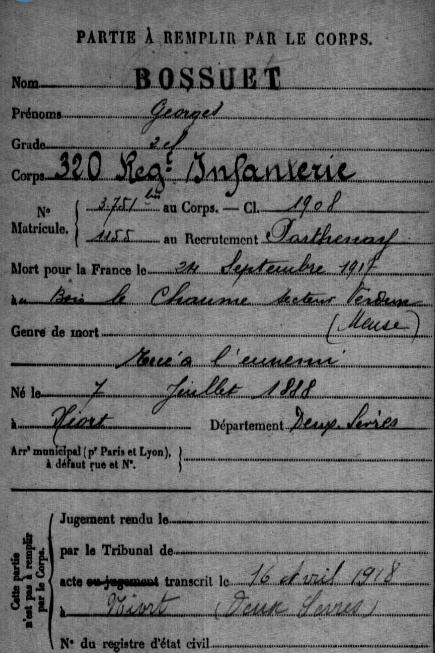 PARTIE À REMPLIR PAR LE CORPS.
Nom BOSSUET
Prénoms Georges
Grade 2 cl
Corps 320 Regt Infanterie
N° Matricule. 3.751 bis au Corps. — Cl. 1908
1155 au Recrutement Parthenay
Mort pour la France le 24 Septembre 1917
à au Bois le Chaume secteur Verdun
(Meuse)
Genre de mort
Tué à l'ennemi
Né le 7 Juillet 1888
à Niort Département Deux-Sèvres
Arrt municipal (pr Paris et Lyon),
à défaut rue et N°.
Cette partie n'est pas à remplir par le Corps.
Jugement rendu le
par le Tribunal de
acte ou jugement transcrit le 16 Avril 1918
à Niort (Deux Sèvres)
N° du registre d'état civil